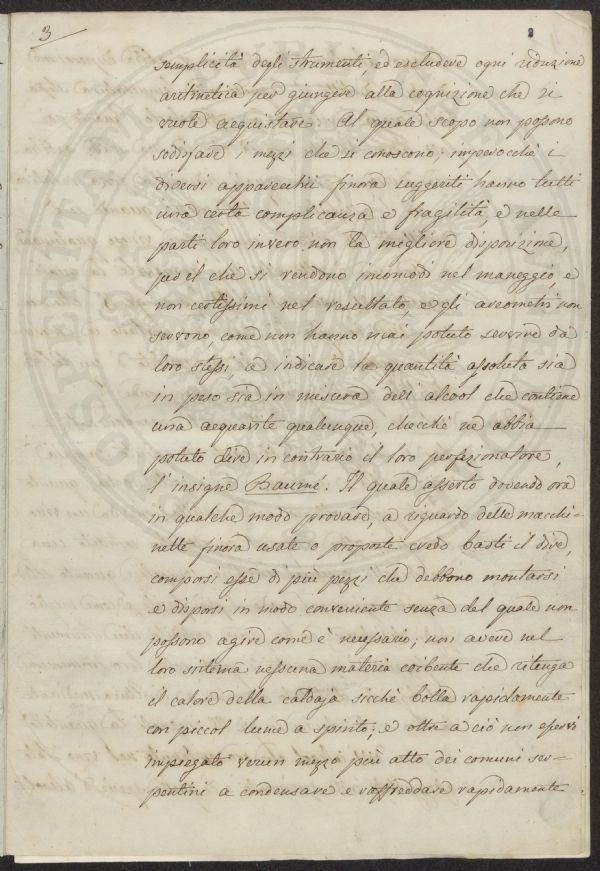 3
semplicità degli strumenti, ed escludere ogni riduzione
aritmetica per giungere alla cognizione che si
vuole acquistare. Al quale scopo non possono
sodisfare i mezzi che si conoscono; imperocchè i
diversi apparecchii finora suggeriti hanno tutti
una certa complicanza e fragilità e nelle
parti loro invero non la migliore disposizione,
per il che si rendono incomodi nel maneggio, e
non certissimi nel resultato, e gli areometri non
servono, come non hanno mai potuto servire da
loro stessi, a indicare la quantità assoluta sia
in peso sia in misura dell'alcool che contiene
una acquavite qualunque, checchè ne abbia
potuto dire in contrario il loro perfezionatore,
l'insigne Baumé. Il quale asserto dovendo ora
in qualche modo provare, a riguardo delle macchi=
nette finora usate o proposte credo basti il dire,
comporsi esse di più pezzi che debbono montarsi
e disporsi in modo conveniente senza del quale non
possono agire come è necessario; non avere nel
loro sistema nessuna materia coibente che ritenga
il calore della caldaja sicchè bolla rapidamente
con piccol lume a spirito; e oltre a ciò non esservi
impiegato verun mezzo più atto dei comuni ser=
pentini a condensare e raffreddare rapidamente